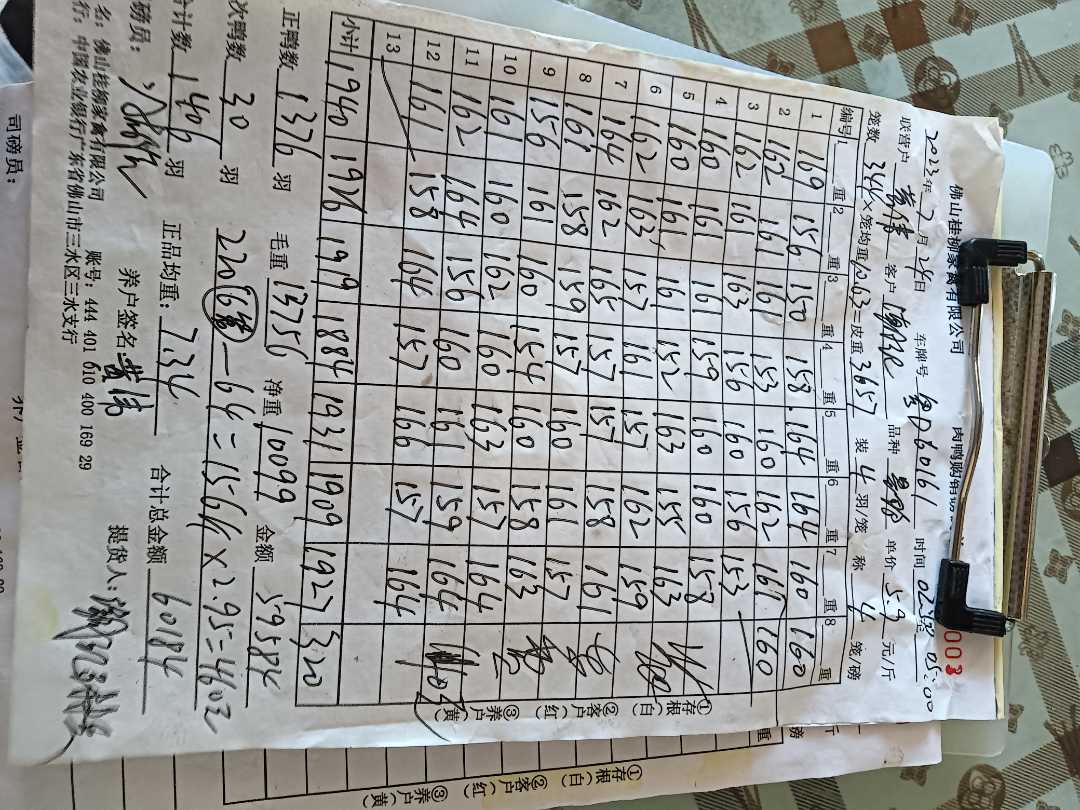 佛山桂柳家禽有限公司 肉鸭购销
003
2023年7月24日 车牌号 粤 60161 时间 05:00
联营户 黄伟 客户 品种 单价 5.9 元/斤
笼数 344×笼均重10.63=皮重3657 装 4 羽/笼 称 4 笼磅
编号 重1 重2 重3 重4 重5 重6 重7 重8
1 169 156 150 158 164 164 160 160
2 162 161 161 153 160 162 161 160
3 162 161 163 156 160 156 153
4 160 161 161 159 160 160 158
5 160 161 161 152 163 155 163
6 162 163 157 161 157 162 159
7 164 162 165 157 157 158 161
8 161 158 159 157 160 161 157
9 156 161 160 154 160 158 163
10 161 160 162 160 163 157 164
11 162 164 156 160 161 159 164
12 161 158 164 157 166 157 164
13
小计 1940 1926 1919 1884 1931 1909 1927 320
①存根(白) ②客户(红) ③养户(黄)
正鸭数 1376 羽 毛重 13756 净重 10099 金额 59584
次鸭数 30 羽 220 - 64 = 156斤 × 2.95 = 460
合计数 1406 羽 正品均重: 7.34 合计总金额 60184
磅员: 养户签名 黄伟 提货人:
名:佛山桂柳家禽有限公司 账号:444 401 610 400 169 29
行:中国农业银行广东省佛山市三水区三水支行
司磅员:
①存根(白) ②客户(红) ③养户(黄)